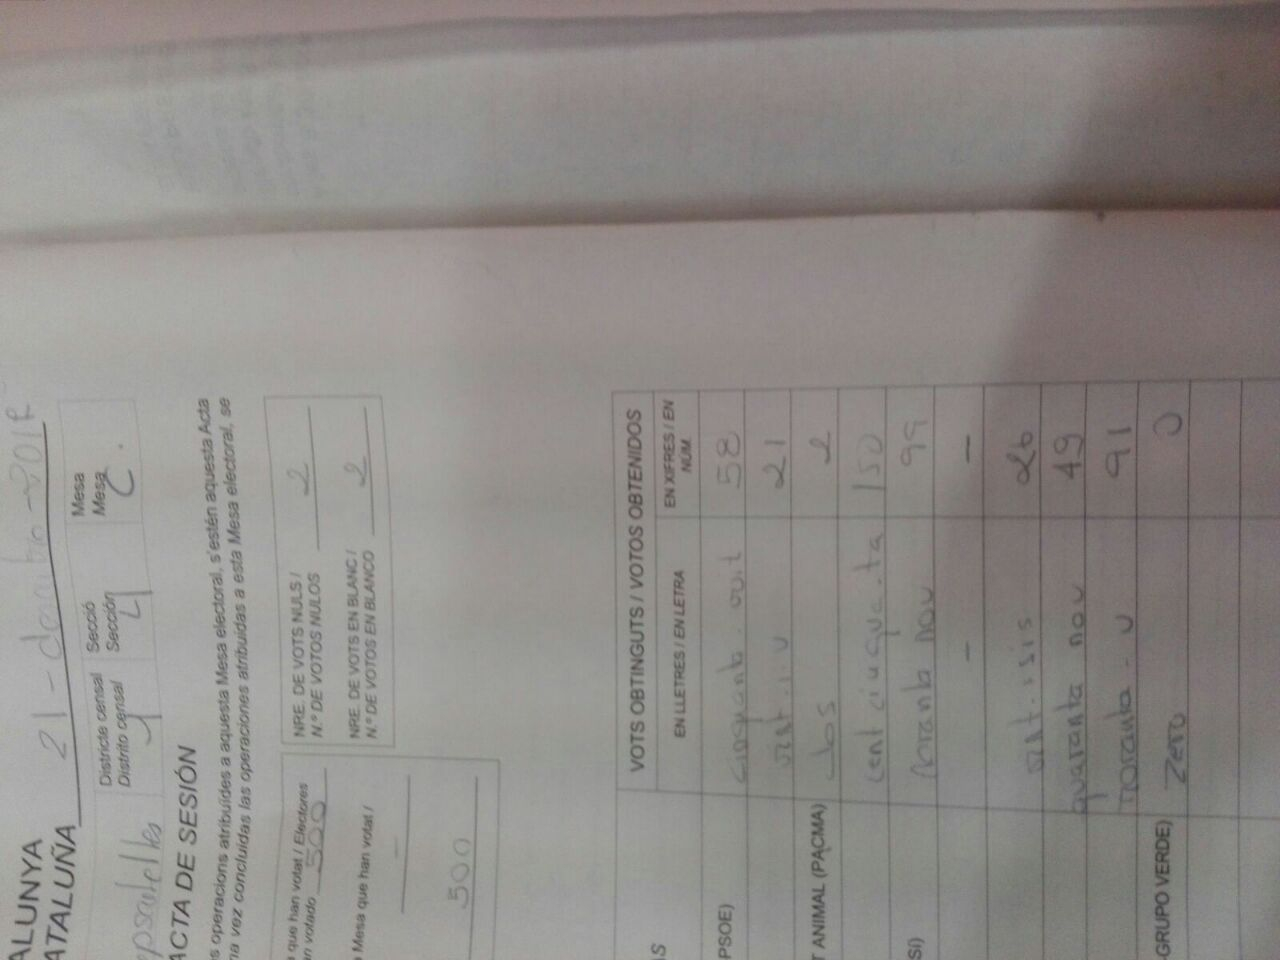 ALUNYA
ATALUÑA 21 - desembre - 2017
Districte censal
Distrito censal 1
Secció
Sección 4
Mesa
Mesa C.
ACTA DE SESIÓN
s operacions atribuïdes a aquesta Mesa electoral, s'estén aquesta Acta
na vez concluidas las operaciones atribuidas a esta Mesa electoral, se
que han votat / Electores
n votado 500
Mesa que han votat /
-
500
NRE. DE VOTS NULS /
N.º DE VOTOS NULOS 2
NRE. DE VOTS EN BLANC /
N.º DE VOTOS EN BLANCO 2
VOTS OBTINGUTS / VOTOS OBTENIDOS
S EN LLETRES / EN LETRA EN XIFRES / EN NÚM.
PSOE) cinquanta-vuit 58
vint-i-u 21
T ANIMAL (PACMA) dos 2
cent cinquanta 150
SÍ) noranta nou 99
- -
vint-i-sis 26
quaranta nou 49
noranta-u 91
-GRUPO VERDE) zero 0